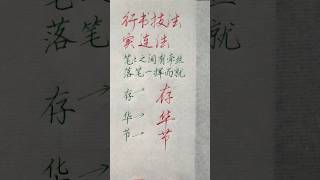 行书技法
实连法
笔笔之间有牵丝
落笔一挥而就
存→存
华→华
节→节